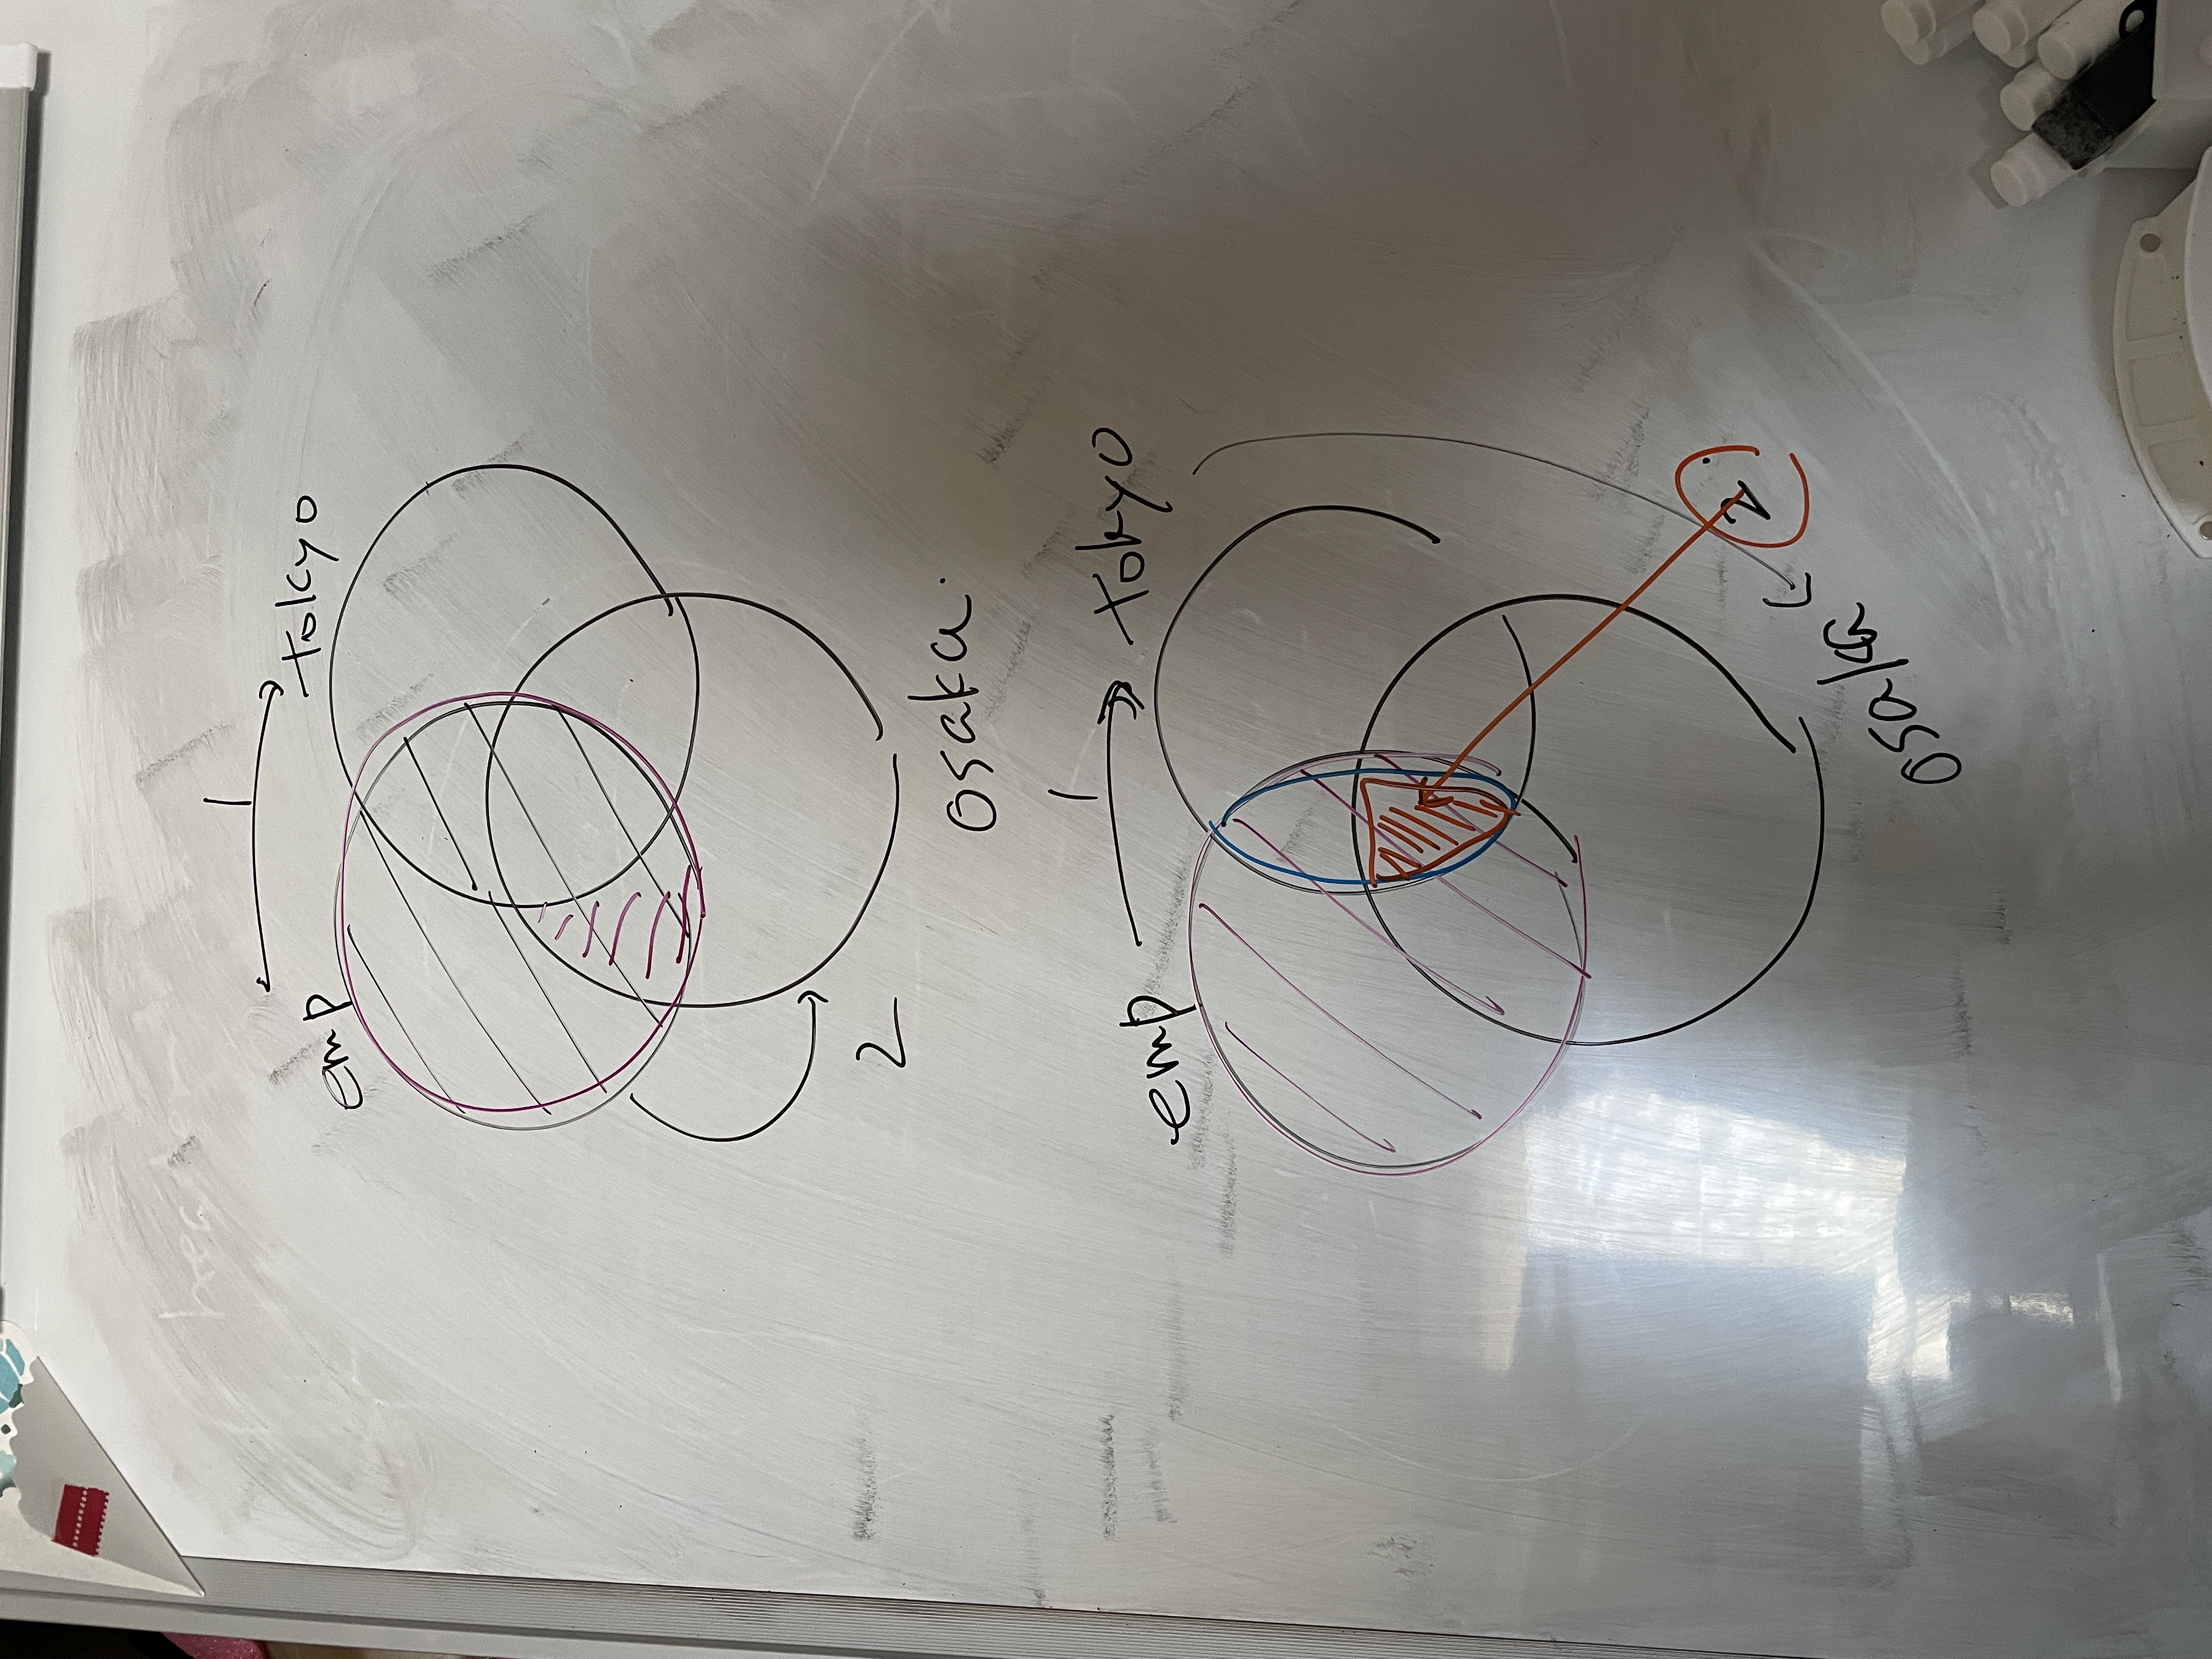 1
emp
tokyo
2
osaka.
1
emp
tokyo
2
osaka